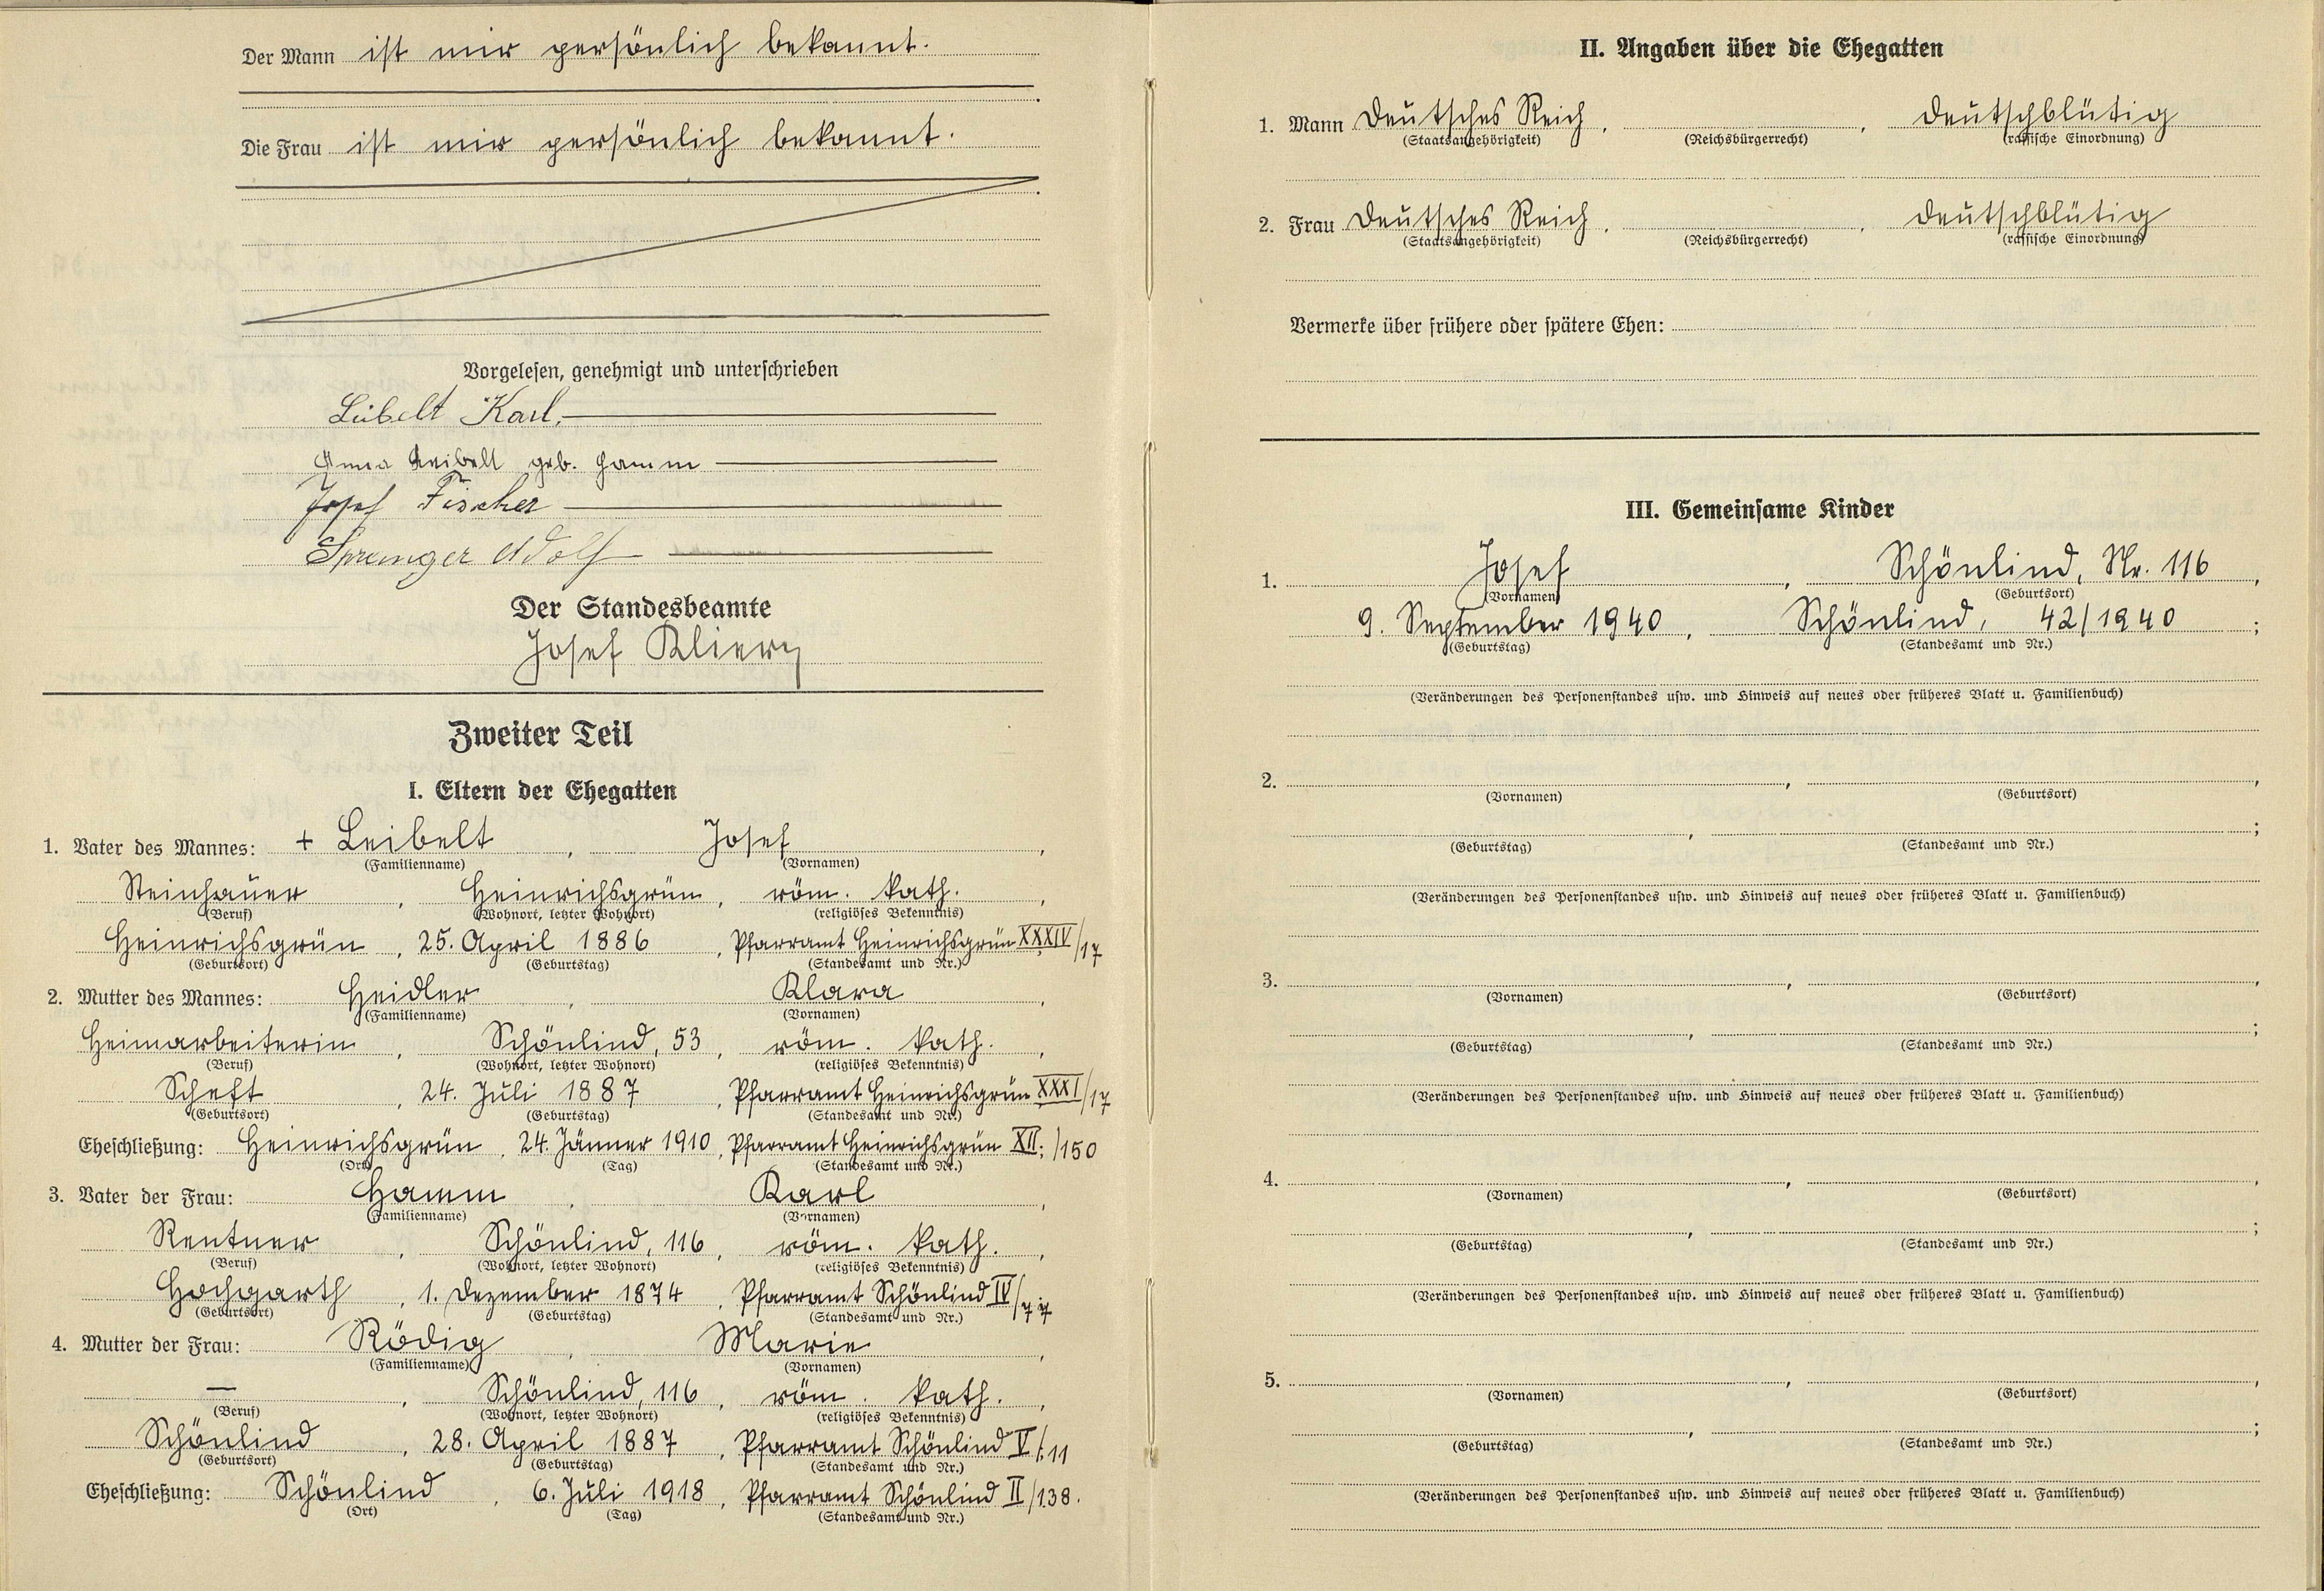 Der Mann ist mir persönlich bekannt.
Die Frau ist mir persönlich bekannt.
Vorgelesen, genehmigt und unterschrieben
Leibelt Karl.
Anna Leibelt geb. Hamm
Josef Fischer
Sprenger Adolf
Der Standesbeamte
Josef Kliery
Zweiter Teil
I. Eltern der Ehegatten
1. Vater des Mannes: + Leibelt, Josef,
(Familienname) (Vornamen)
Steinhauer, Heinrichsgrün, röm. kath.,
(Beruf) (Wohnort, letzter Wohnort) (religiöses Bekenntnis)
Heinrichsgrün, 25. April 1886, Pfarramt Heinrichsgrün XXXIV/17
(Geburtsort) (Geburtstag) (Standesamt und Nr.)
2. Mutter des Mannes: Heidler, Klara,
(Familienname) (Vornamen)
Heimarbeiterin, Schönlind, 53, röm. kath.,
(Beruf) (Wohnort, letzter Wohnort) (religiöses Bekenntnis)
Scheft, 24. Juli 1887, Pfarramt Heinrichsgrün XXXI/17
(Geburtsort) (Geburtstag) (Standesamt und Nr.)
Eheschließung: Heinrichsgrün, 24. Jänner 1910, Pfarramt Heinrichsgrün XII./150
(Ort) (Tag) (Standesamt und Nr.)
3. Vater der Frau: Hamm, Karl,
(Familienname) (Vornamen)
Rentner, Schönlind, 116, röm. kath.,
(Beruf) (Wohnort, letzter Wohnort) (religiöses Bekenntnis)
Hochgarth, 1. Dezember 1874, Pfarramt Schönlind IV/77
(Geburtsort) (Geburtstag) (Standesamt und Nr.)
4. Mutter der Frau: Rödig, Marie,
(Familienname) (Vornamen)
—, Schönlind, 116, röm. kath.,
(Beruf) (Wohnort, letzter Wohnort) (religiöses Bekenntnis)
Schönlind, 28. April 1887, Pfarramt Schönlind V/11
(Geburtsort) (Geburtstag) (Standesamt und Nr.)
Eheschließung: Schönlind, 6. Juli 1918, Pfarramt Schönlind II/138.
(Ort) (Tag) (Standesamt und Nr.)
II. Angaben über die Ehegatten
1. Mann Deutsches Reich, , deutschblütig
(Staatsangehörigkeit) (Reichsbürgerrecht) (rassische Einordnung)
2. Frau Deutsches Reich, , deutschblütig
(Staatsangehörigkeit) (Reichsbürgerrecht) (rassische Einordnung)
Vermerke über frühere oder spätere Ehen:
III. Gemeinsame Kinder
1. Josef, Schönlind, Nr. 116,
(Vornamen) (Geburtsort)
9. September 1940, Schönlind, 42/1940;
(Geburtstag) (Standesamt und Nr.)
(Veränderungen des Personenstandes usw. und Hinweis auf neues oder früheres Blatt u. Familienbuch)
2. , ,
(Vornamen) (Geburtsort)
, ;
(Geburtstag) (Standesamt und Nr.)
(Veränderungen des Personenstandes usw. und Hinweis auf neues oder früheres Blatt u. Familienbuch)
3. , ,
(Vornamen) (Geburtsort)
, ;
(Geburtstag) (Standesamt und Nr.)
(Veränderungen des Personenstandes usw. und Hinweis auf neues oder früheres Blatt u. Familienbuch)
4. , ,
(Vornamen) (Geburtsort)
, ;
(Geburtstag) (Standesamt und Nr.)
(Veränderungen des Personenstandes usw. und Hinweis auf neues oder früheres Blatt u. Familienbuch)
5. , ,
(Vornamen) (Geburtsort)
, ;
(Geburtstag) (Standesamt und Nr.)
(Veränderungen des Personenstandes usw. und Hinweis auf neues oder früheres Blatt u. Familienbuch)